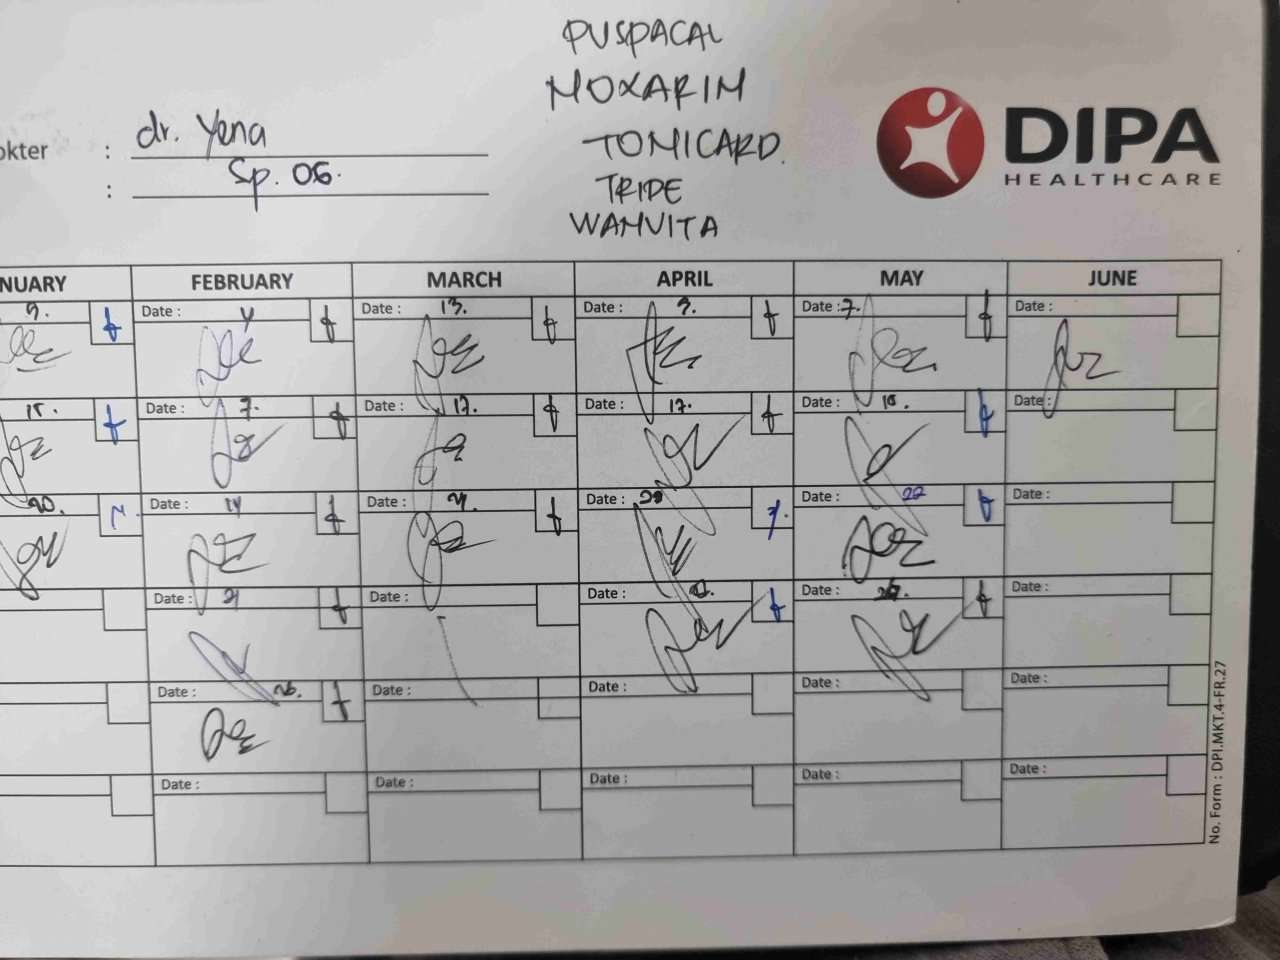 PUSPACAL
MOXARIM
TOMICARD.
TRIDE
WAMVITA
okter : dr. Yena
: Sp. OG.
DIPA
HEALTHCARE
NUARY FEBRUARY MARCH APRIL MAY JUNE
9. Date : 4 Date : 13. Date : 9. Date : 7. Date :
15. Date : 7. Date : 17. Date : 17. Date : 15. Date :
20. Date : 14 Date : 21. Date : Date : 22 Date :
Date : 21 Date : Date : Date : Date :
Date : 26. Date : Date : Date : Date :
Date : Date : Date : Date : Date :
No. Form : DPI.MKT.4-FR.27